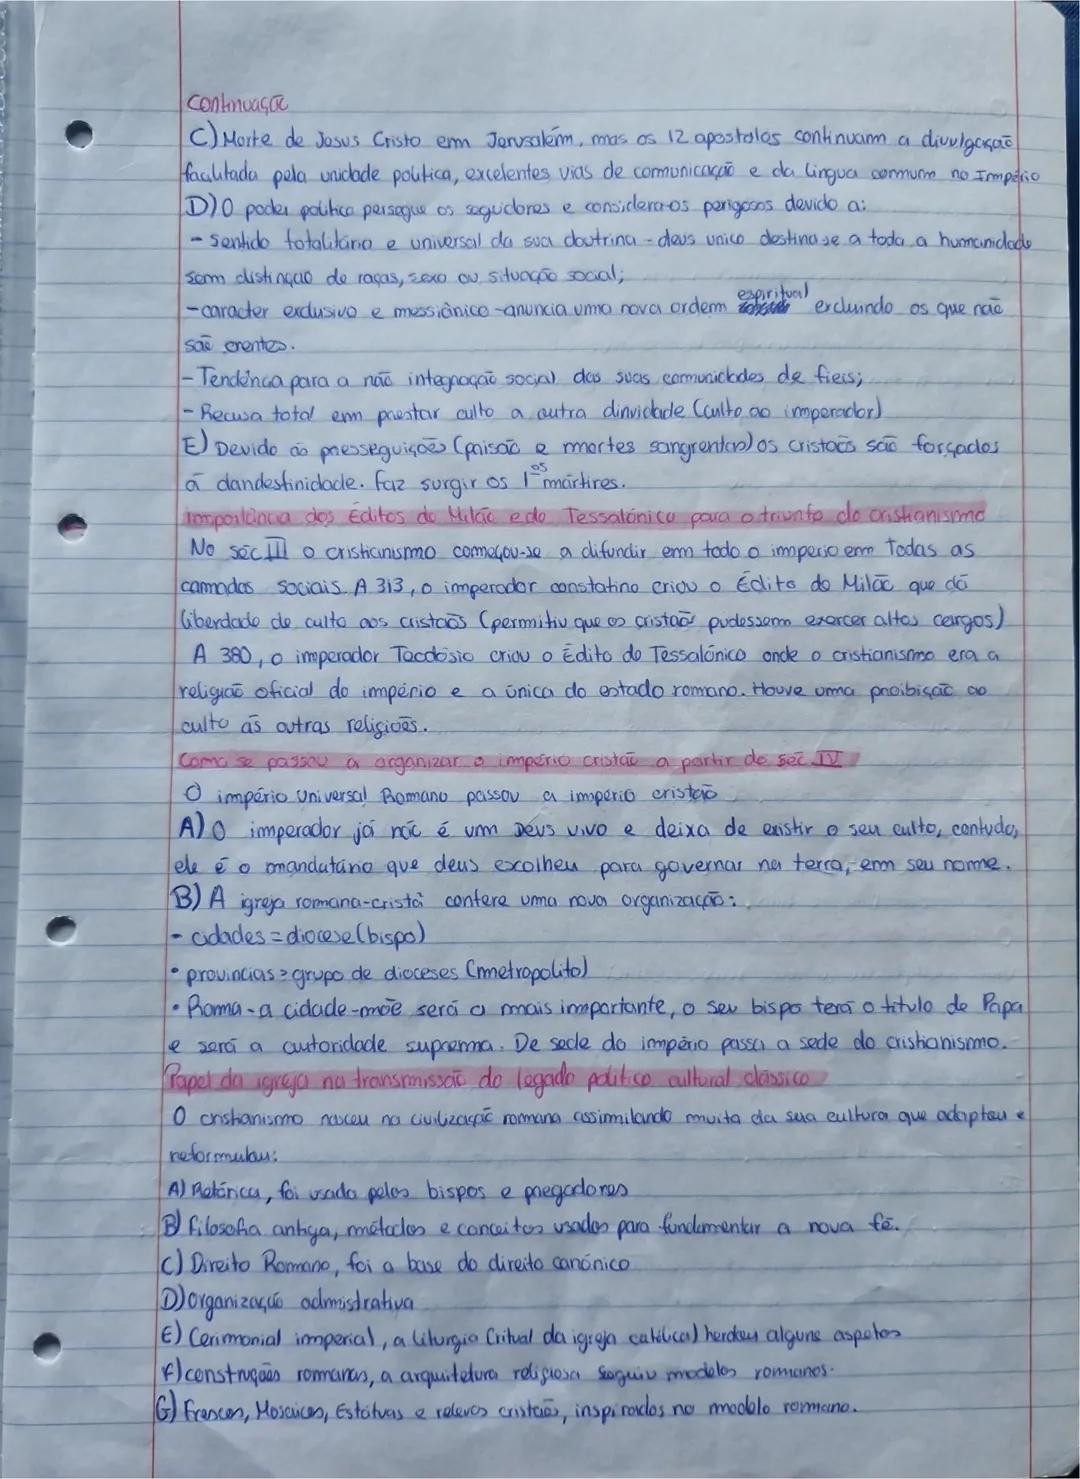 Continuação
C) Morte de Jesus Cristo em Jerusalém, mas os 12 apostolos continuam a divulgação
facilitada pela unidade politica, excelentes vias de comunicação e da lingua comum no Império
D) O poder politico persegue os seguidores e considera-os perigosos devido a:
- sentido totalitário e universal da sua doutrina - deus unico destina se a toda a humanidade
sem distinção de raças, sexo ou situação social;
- caracter exclusivo e messiânico - anuncia uma nova ordem espiritual excluindo os que não
são crentes.
- Tendência para a não integração social das suas comunidades de fieis;
- Recusa total em prestar culto a outra dinvidade (culto ao imperador)
E) Devido ás presseguições (prisão e mortes sangrentas) os cristãos são forçados
á clandestinidade. Faz surgir os 1os mártires.
Importância dos Éditos de Milão e de Tessalónica para o triunfo do cristianismo
No séc III o cristianismo começou-se a difundir em todo o imperio em todas as
camadas sociais. A 313, o imperador constatino criou o Édito de Milão que dá
liberdade de culto aos cristãos (permitiu que os cristão pudessem exercer altos cargos)
A 380, o imperador Teodósio criou o Édito de Tessalónica onde o cristianismo era a
religião oficial do império e a única do estado romano. Houve uma proibição ao
culto ás outras religiões.
Como se passou a organizar o império cristão a partir do séc. IV
O império Universal Romano passou a imperio cristão
A) O imperador já não é um Deus vivo e deixa de existir o seu culto, contudo,
ele é o mandatário que deus escolheu para governar na terra, em seu nome.
B) A igreja romana-cristã contere uma nova organização:
- cidades = diocese (bispo)
• provincias = grupo de dioceses (metropolito)
• Roma - a cidade-mãe será a mais importante, o seu bispo terá o titulo de Papa
e será a autoridade suprema. De sede do império passa a sede do cristianismo.
Papel da igreja na transmissão do legado politico cultural clássico
O cristianismo nasceu na civilização romana assimilando muita da sua cultura que adaptou e
reformulou:
A) Retórica, foi usada pelos bispos e pregadores
B) filosofia antiga, métodos e conceitos usados para fundamentar a nova fé.
C) Direito Romano, foi a base do direito canónico
D) organização admistrativa
E) Cerimonial imperial, a liturgia (ritual da igreja católica) herdou alguns aspetos
F) construções romanas, a arquitetura religiosa seguiu modelos romanos.
G) Frescos, Mosaicos, Estátuas e relevos cristãos, inspirados no modelo romano.